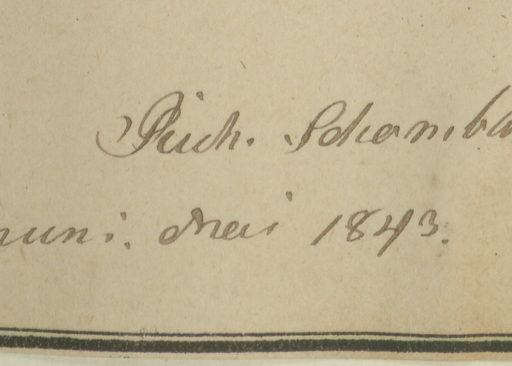 Rich. Schomb
uni. Mai 1843.